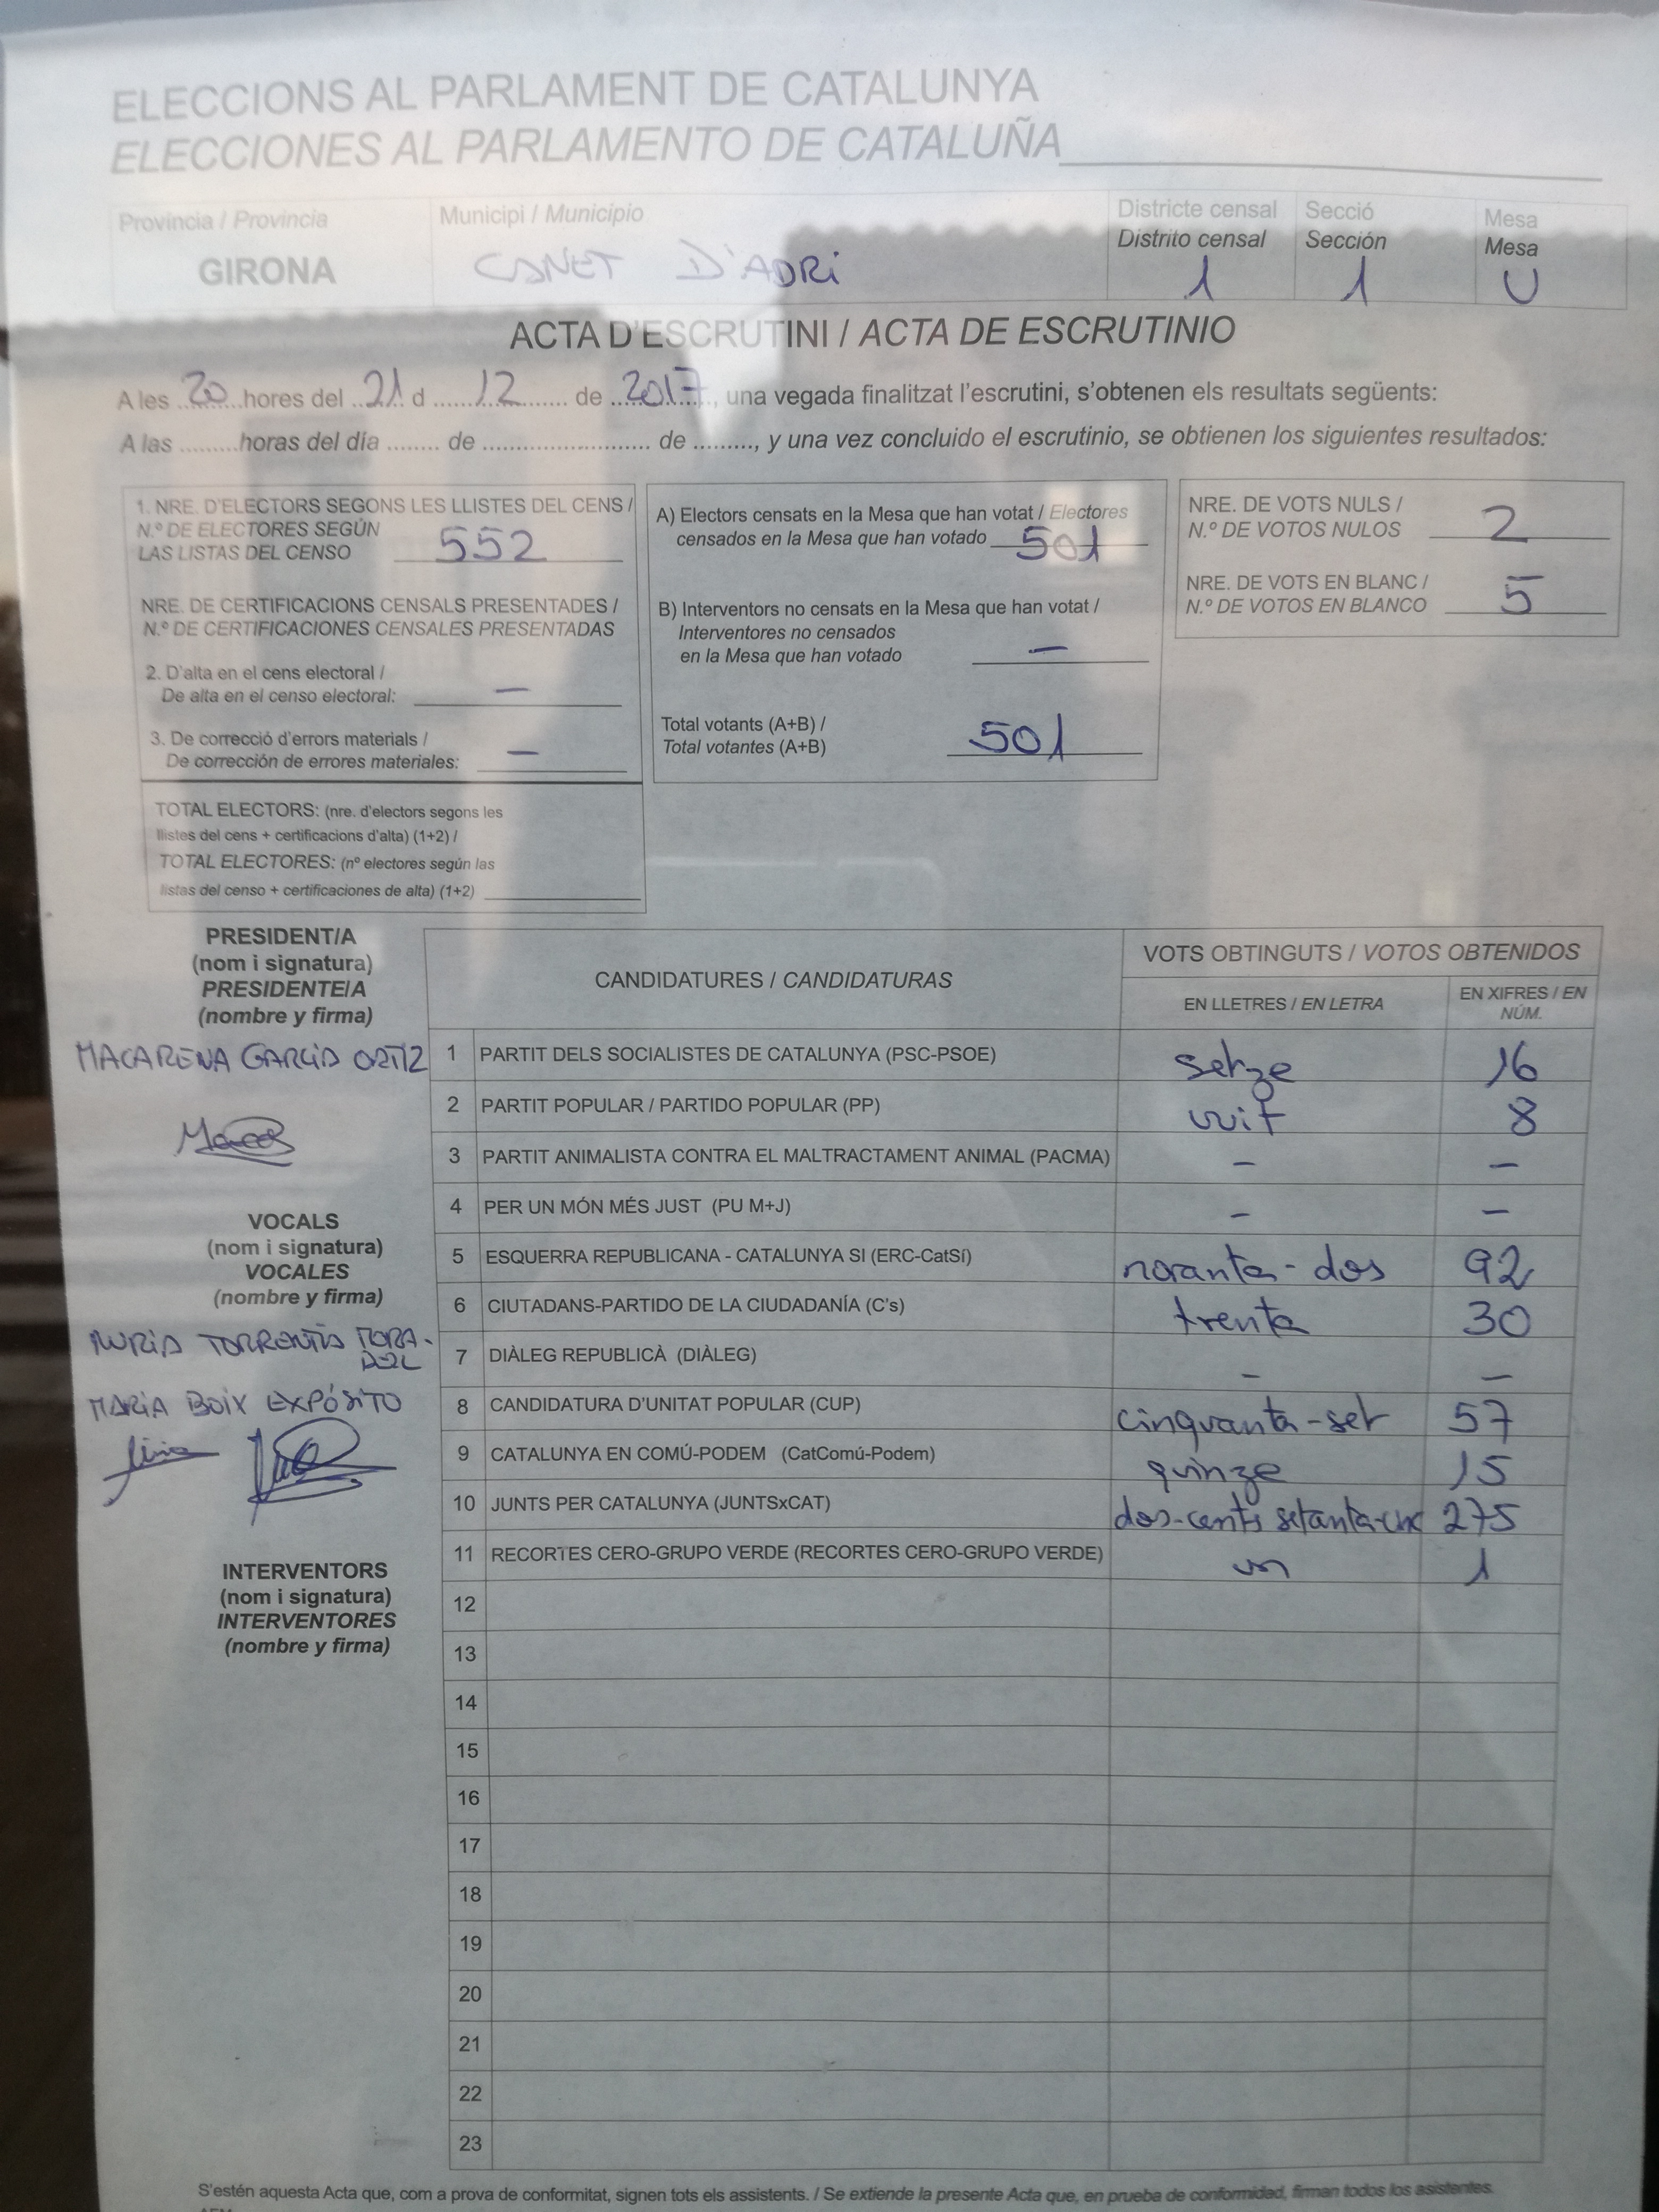 ELECCIONS AL PARLAMENT DE CATALUNYA
ELECCIONES AL PARLAMENTO DE CATALUÑA
Provincia / Provincia
GIRONA
Municipi / Municipio
CANET D'ADRI
Districte censal
Distrito censal
1
Secció
Sección
1
Mesa
Mesa
U
ACTA D'ESCRUTINI / ACTA DE ESCRUTINIO
A les 20 hores del 21 d 12 de 2017, una vegada finalitzat l'escrutini, s'obtenen els resultats següents:
A las ......... horas del día ........ de .......................... de ........., y una vez concluido el escrutinio, se obtienen los siguientes resultados:
1. NRE. D'ELECTORS SEGONS LES LLISTES DEL CENS /
N.º DE ELECTORES SEGÚN
LAS LISTAS DEL CENSO 552
NRE. DE CERTIFICACIONS CENSALS PRESENTADES /
N.º DE CERTIFICACIONES CENSALES PRESENTADAS
2. D'alta en el cens electoral /
De alta en el censo electoral: —
3. De correcció d'errors materials /
De corrección de errores materiales: —
TOTAL ELECTORS: (nre. d'electors segons les
llistes del cens + certificacions d'alta) (1+2) /
TOTAL ELECTORES: (nº electores según las
listas del censo + certificaciones de alta) (1+2)
A) Electors censats en la Mesa que han votat / Electores
censados en la Mesa que han votado 501
B) Interventors no censats en la Mesa que han votat /
Interventores no censados
en la Mesa que han votado —
Total votants (A+B) /
Total votantes (A+B) 501
NRE. DE VOTS NULS /
N.º DE VOTOS NULOS 2
NRE. DE VOTS EN BLANC /
N.º DE VOTOS EN BLANCO 5
PRESIDENT/A
(nom i signatura)
PRESIDENTE/A
(nombre y firma)
MACARENA GARCIA ORTIZ
VOCALS
(nom i signatura)
VOCALES
(nombre y firma)
NURIA TORRENTÀ
MARIA BOIX EXPÓSITO
INTERVENTORS
(nom i signatura)
INTERVENTORES
(nombre y firma)
CANDIDATURES / CANDIDATURAS
VOTS OBTINGUTS / VOTOS OBTENIDOS
EN LLETRES / EN LETRA
EN XIFRES / EN
NÚM.
1 PARTIT DELS SOCIALISTES DE CATALUNYA (PSC-PSOE) setze 16
2 PARTIT POPULAR / PARTIDO POPULAR (PP) vuit 8
3 PARTIT ANIMALISTA CONTRA EL MALTRACTAMENT ANIMAL (PACMA) — —
4 PER UN MÓN MÉS JUST (PU M+J) — —
5 ESQUERRA REPUBLICANA - CATALUNYA SI (ERC-CatSí) noranta-dos 92
6 CIUTADANS-PARTIDO DE LA CIUDADANÍA (C's) trenta 30
7 DIÀLEG REPUBLICÀ (DIÀLEG) — —
8 CANDIDATURA D'UNITAT POPULAR (CUP) cinquanta-set 57
9 CATALUNYA EN COMÚ-PODEM (CatComú-Podem) quinze 15
10 JUNTS PER CATALUNYA (JUNTSxCAT) dos-cents setanta-cinc 275
11 RECORTES CERO-GRUPO VERDE (RECORTES CERO-GRUPO VERDE) un 1
12
13
14
15
16
17
18
19
20
21
22
23
S'estén aquesta Acta que, com a prova de conformitat, signen tots els assistents. / Se extiende la presente Acta que, en prueba de conformidad, firman todos los asistentes.